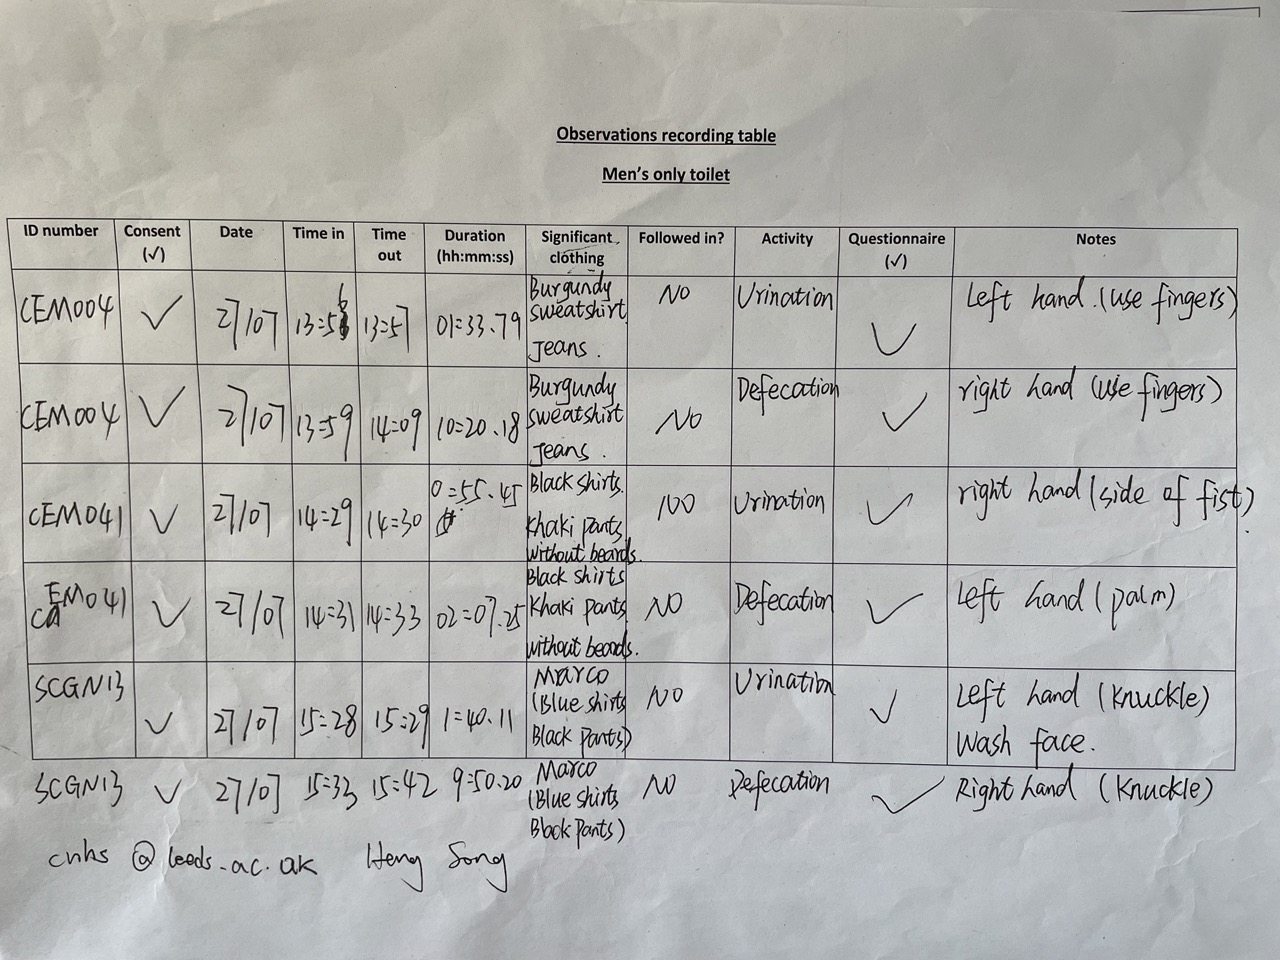 Observations recording table
Men's only toilet
ID number Consent (✓) Date Time in Time out Duration (hh:mm:ss) Significant clothing Followed in? Activity Questionnaire (✓) Notes
CEM004 ✓ 27/07 13=56 13=57 01=33.79 Burgundy sweatshirt Jeans. NO Urination ✓ Left hand.(use fingers)
CEM004 ✓ 27/07 13=59 14=09 10=20.18 Burgundy sweatshirt Jeans. NO Defecation ✓ right hand (use fingers)
CEM041 ✓ 27/07 14=29 14=30 0=55.45 Black shirts. Khaki pants without beards. NO Urination ✓ right hand (side of fist)
CEM041 ✓ 27/07 14=31 14=33 02=07.25 Black shirts Khaki pants without beards. NO Defecation ✓ Left hand (palm)
SCGN13 ✓ 27/07 15=28 15=29 1=40.11 Marco (Blue shirts Black Pants) NO Urination ✓ Left hand (Knuckle) Wash face.
SCGN13 ✓ 27/07 15=33 15=42 9=50.20 Marco (Blue shirts Black Pants) NO Defecation ✓ Right hand (Knuckle)
cnhs @leeds.ac.uk Heng Song